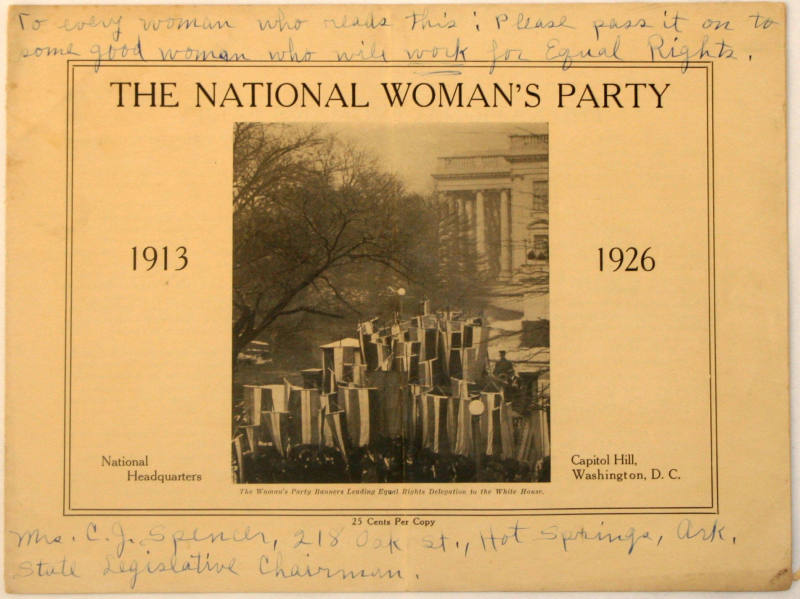 To every woman who reads this: Please pass it on to
some good woman who will work for Equal Rights.
THE NATIONAL WOMAN'S PARTY
1913
1926
National
Headquarters
Capitol Hill,
Washington, D. C.
The Woman's Party Banners Leading Equal Rights Delegation to the White House.
25 Cents Per Copy
Mrs. C. J. Spencer, 218 Oak St., Hot Springs, Ark.
State Legislative Chairman.